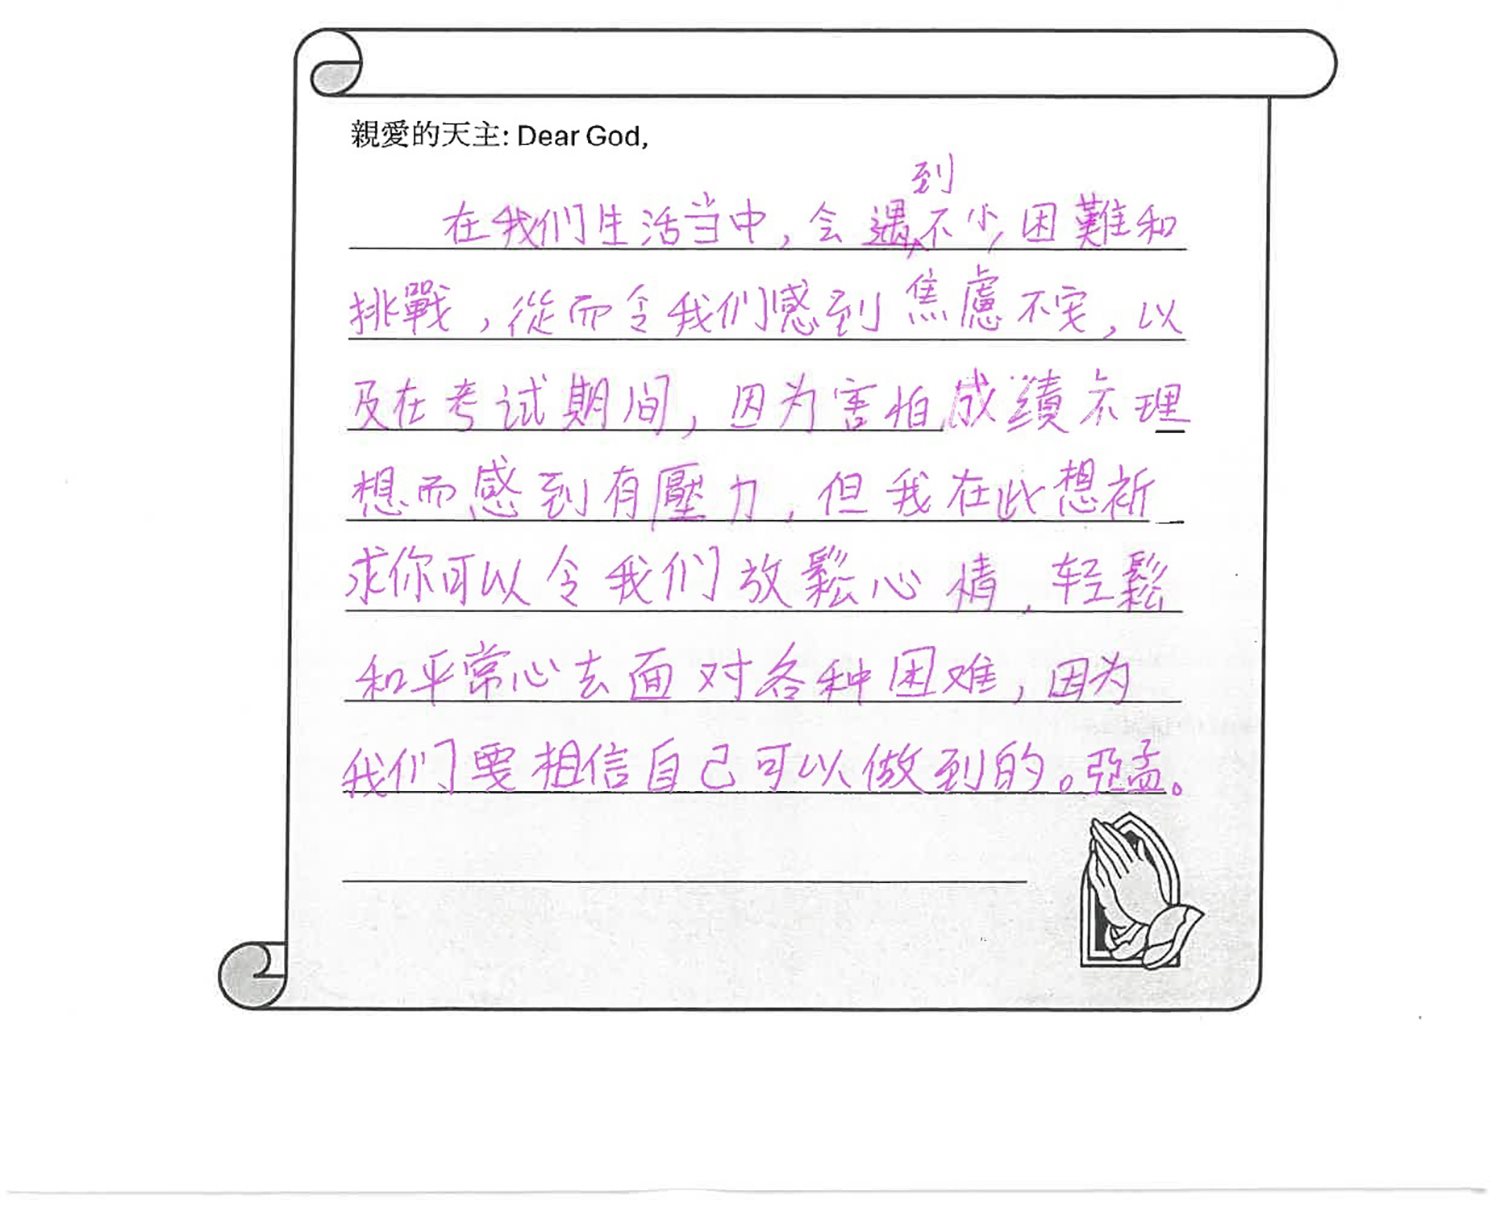 親愛的天主: Dear God,
在我们生活当中，会遇到不少困難和
挑戰，從而令我们感到焦慮不安，以
及在考试期间，因为害怕成績不理
想而感到有壓力，但我在此想祈
求你可以令我们放鬆心情，轻鬆
和平常心去面对各种困难，因为
我们要相信自己可以做到的。亞孟。